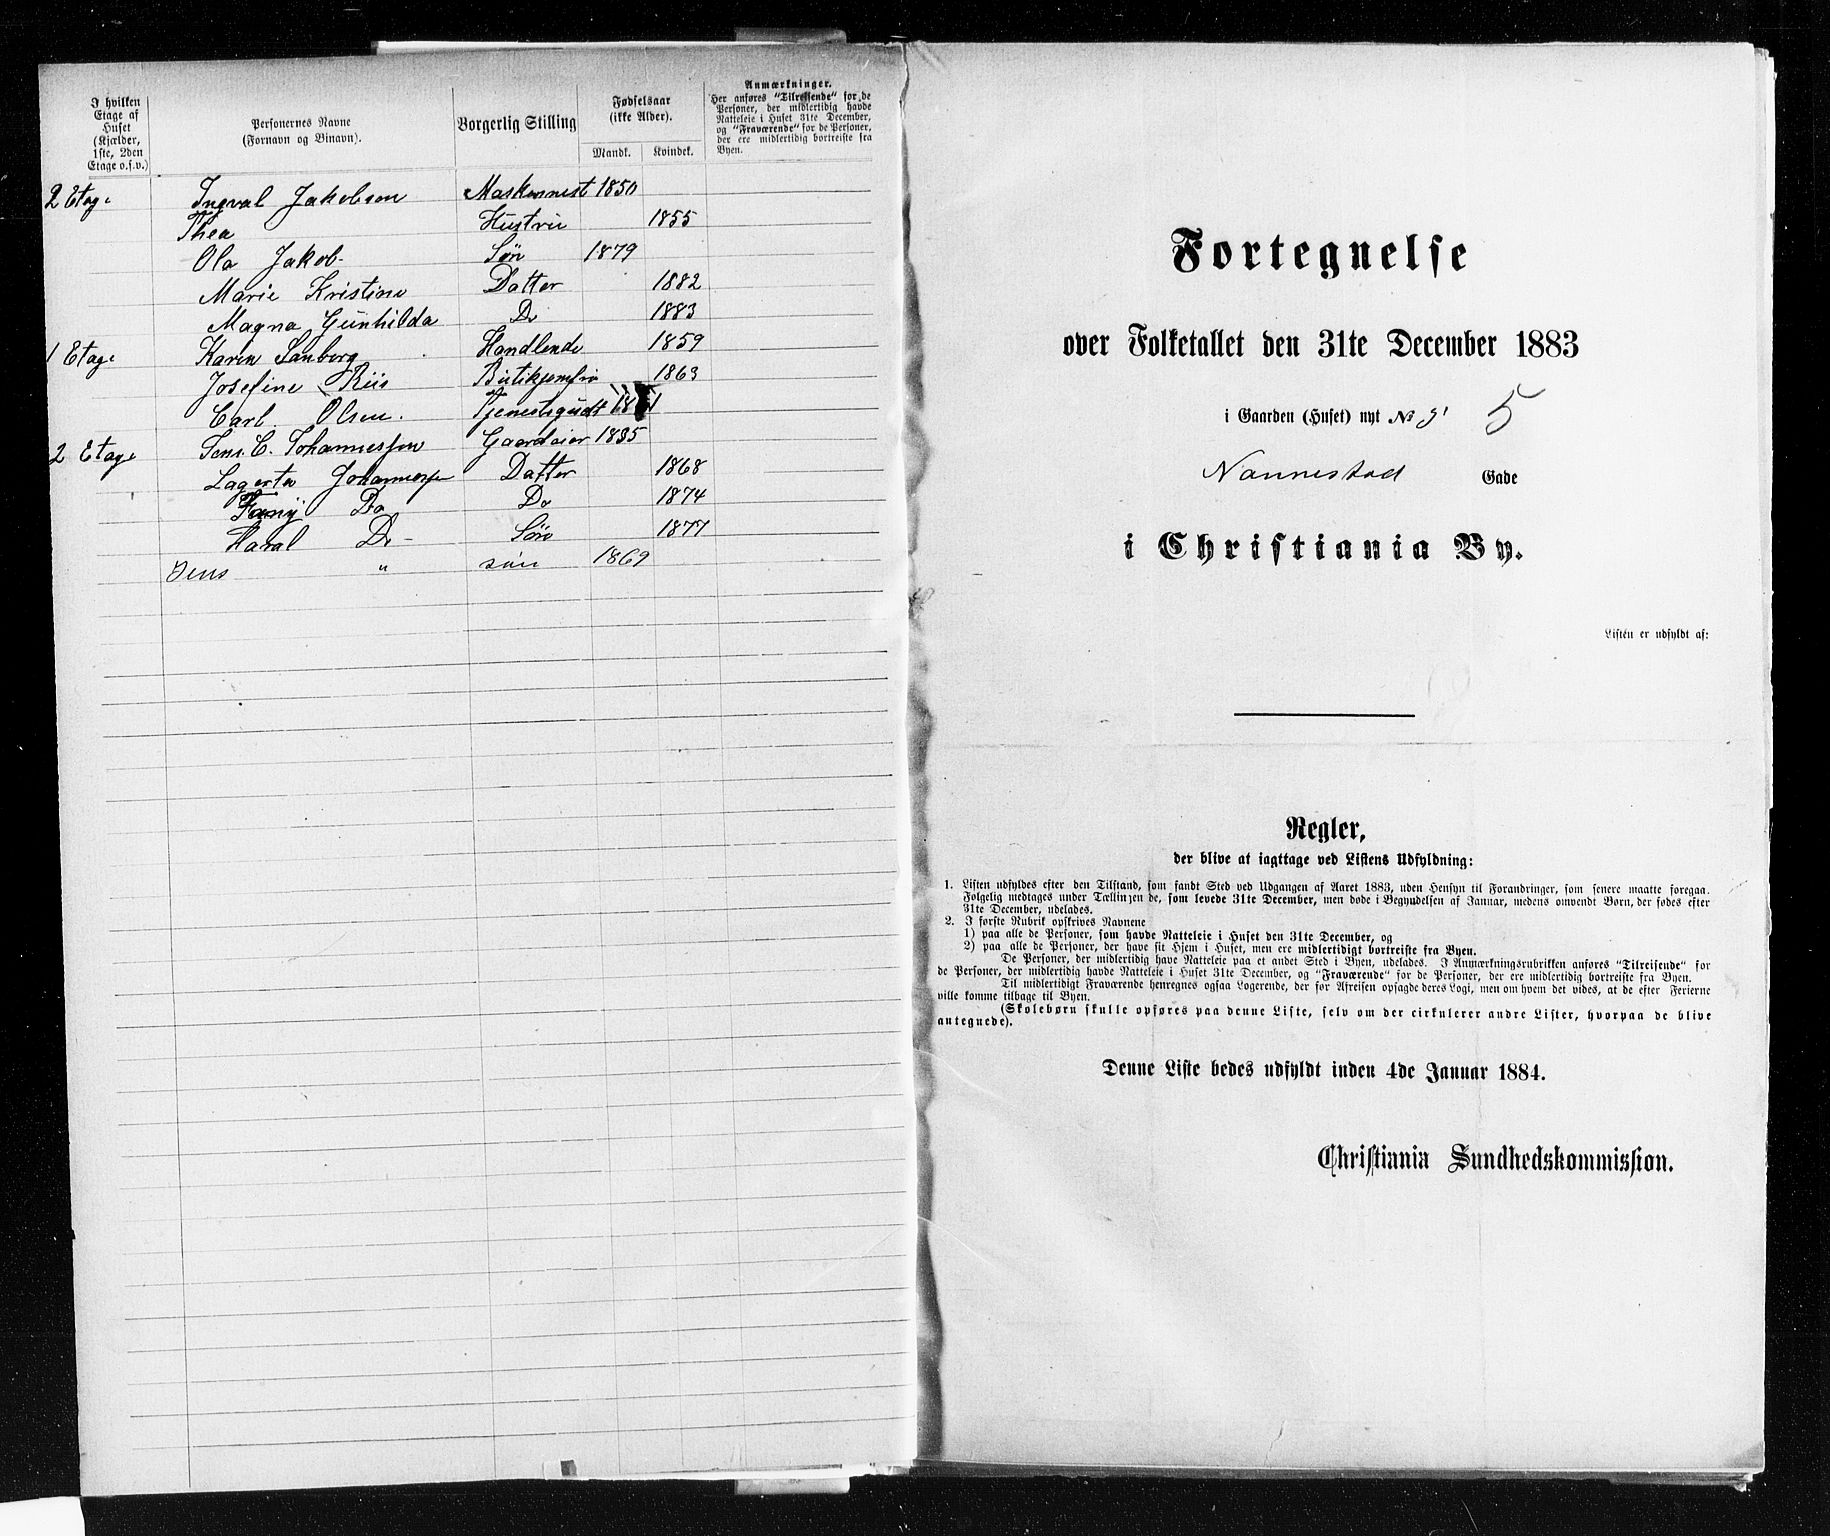 I hvilken
Etage af
Huset
(Kjælder,
1ste, 2den
Etage o.s.v.)
Personernes Navne
(Fornavn og Binavn).
Borgerlig Stilling
Fødselsaar
(ikke Alder).
Mandk. Kvindek.
Anmærkninger.
Her anføres "Tilreisende" for de
Personer, der midlertidig havde
Natteleie i Huset 31te December,
og "Fraværende" for de Personer,
der ere midlertidig bortreiste fra
Byen.
2 Etage Ingval Jakobsen Maskennist 1850
Thea Hustru 1855
Ola Jakob- Søn 1879
Marie Kristine Datter 1882
Magna Gunhilda Do 1883
1 Etage Karen Sanberg Handlende 1859
Josefine Riis Butikjomfru 1863
Carl Olsen. Tjenestegudt
2 Etage Jens. C. Johannessen Gaardeier 1835
Lagerta Johannessen Datter 1868
Fanny Do Do 1874
Haral Do - Søn 1877
Jens " søn 1869
Fortegnelse
over Folketallet den 31te December 1883
i Gaarden (Huset) nyt № 5
Nannestad Gade
i Christiania By.
Listen er udfyldt af:
Regler,
der blive at iagttage ved Listens Udfyldning:
1. Listen udfyldes efter den Tilstand, som fandt Sted ved Udgangen af Aaret 1883, uden Hensyn til Forandringer, som senere maatte foregaa.
Følgelig medtages under Tællingen de, som levede 31te December, men døde i Begyndelsen af Januar, medens omvendt Børn, der fødes efter
31te December, udelades.
2. I første Rubrik opskrives Navnene
1) paa alle de Personer, som havde Natteleie i Huset den 31te December, og
2) paa alle de Personer, der have sit Hjem i Huset, men ere midlertidigt bortreiste fra Byen.
De Personer, der midlertidig have Natteleie paa et andet Sted i Byen, udelades. I Anmærkningsrubrikken anføres "Tilreisende" for
de Personer, der midlertidig havde Natteleie i Huset 31te December, og "Fraværende" for de Personer, der ere midlertidig bortreiste fra Byen.
Til midlertidigt Fraværende henregnes ogsaa Logerende, der før Afreisen opsagde deres Logi, men om hvem det vides, at de efter Ferierne
ville komme tilbage til Byen.
(Skolebørn skulle opføres paa denne Liste, selv om der cirkulerer andre Lister, hvorpaa de blive
antegnede).
Denne Liste bedes udfyldt inden 4de Januar 1884.
Christiania Sundhedskommission.